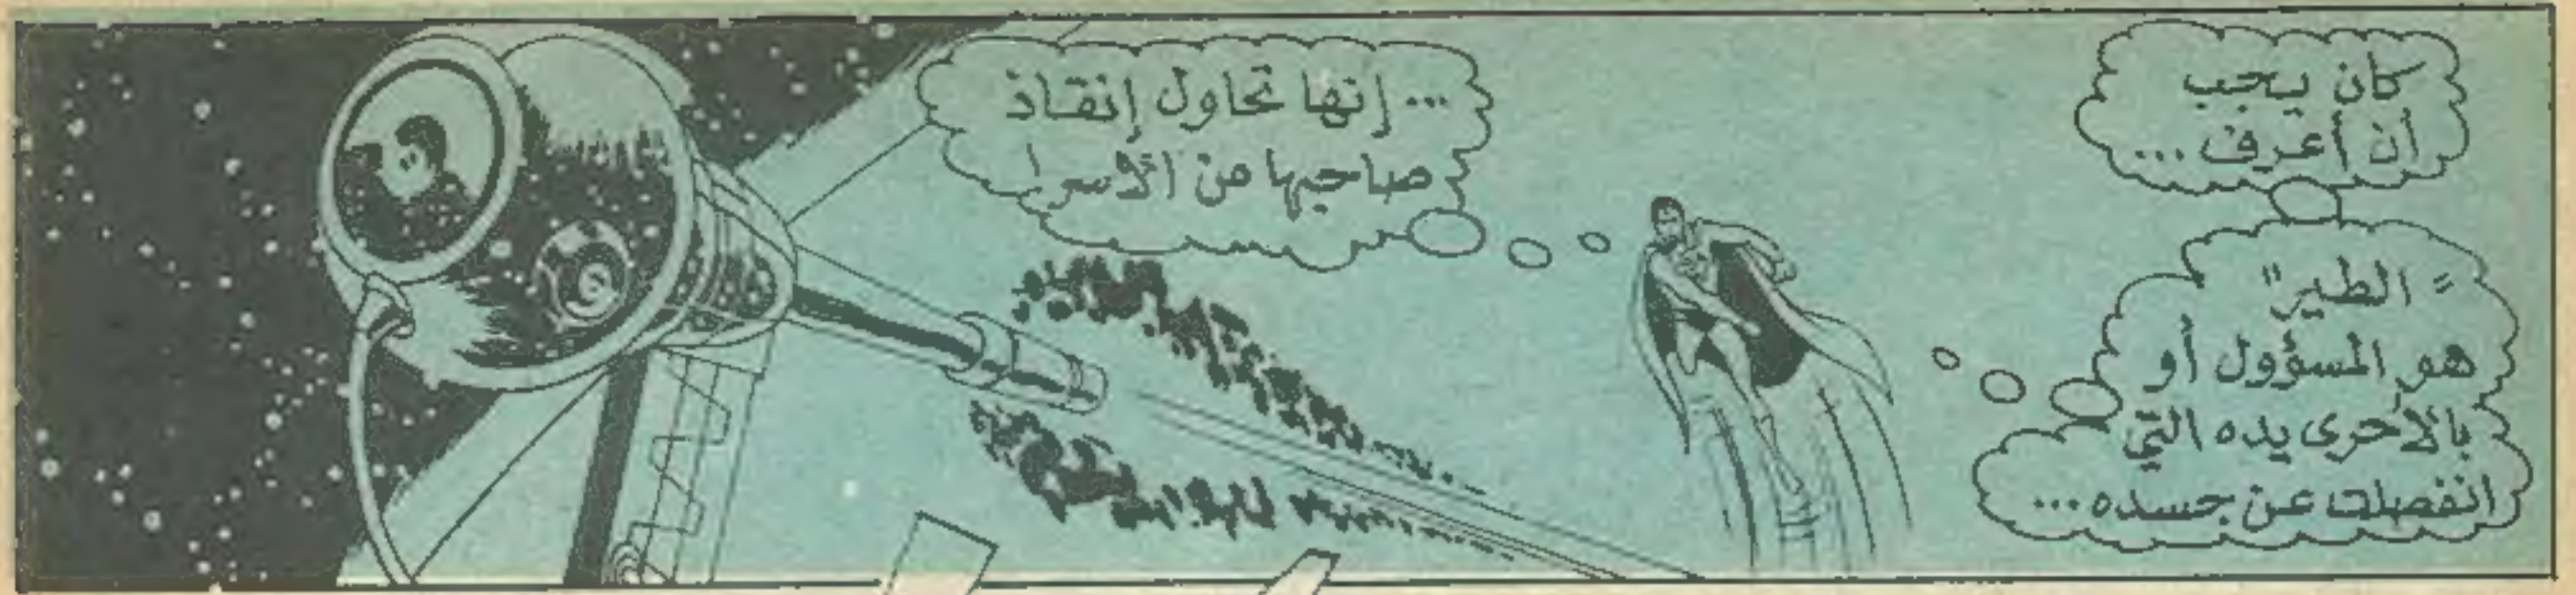 كان يجب
أن أعرف ...
"الطير"
هو المسؤول أو
بالأحرى يده التي
انفصلت عن جسده ...
... إنها تحاول إنقاذ
صاحبها من الأسر !